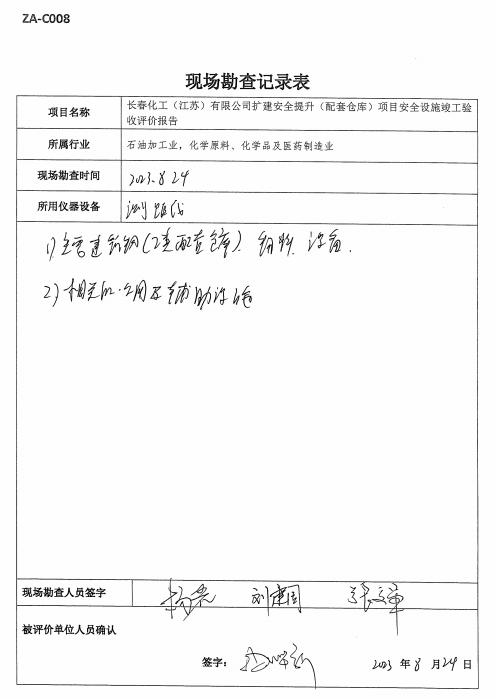 ZA-C008
现场勘查记录表
项目名称
长春化工（江苏）有限公司扩建安全提升（配套仓库）项目安全设施竣工验
收评价报告
所属行业
石油加工业，化学原料、化学品及医药制造业
现场勘查时间
2023.8.24
所用仪器设备
测距仪
1)主要建 (配套仓库)、 设备.
2)相关的公用及辅助设施
现场勘查人员签字
刘建国
被评价单位人员确认
签字：
2023 年 8 月 24 日